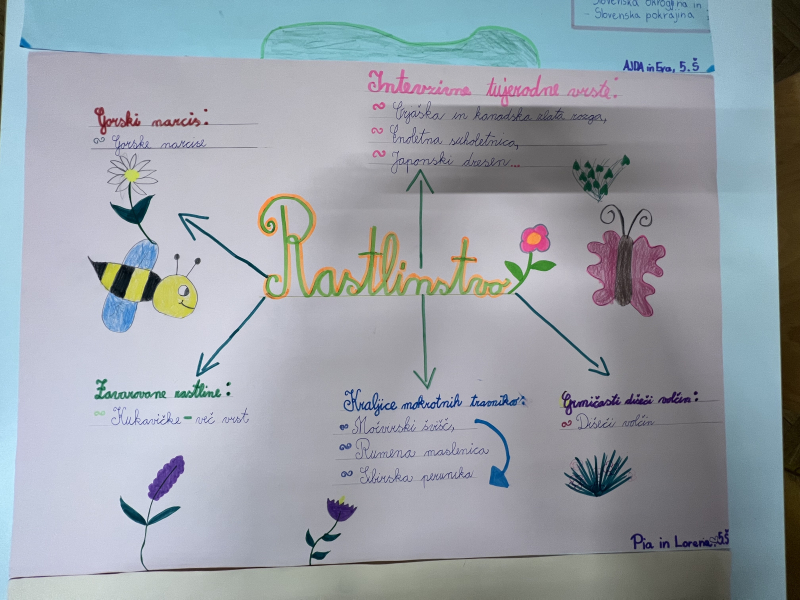 Slovenska okroglina in
- Slovenska pokrajina
AJDA in Eva, 5.Š
Intevzivne tujerodne vrste:
~ Orjaška in kanadska zlata rozga,
~ Enoletna suholetnica,
~ Japonski dresen...
Gorski narcis:
~ Gorske narcise
Rastlinstvo
Zavarovane rastline:
~ Kukavičke - več vrst
Kraljice mokrotnih travnikov:
~ Močvirski svišč,
~ Rumena maslenica
~ Sibirska perunika
Grmičasti dišeči volčin:
~ Dišeči volčin
Pia in Lorena, 5.Š